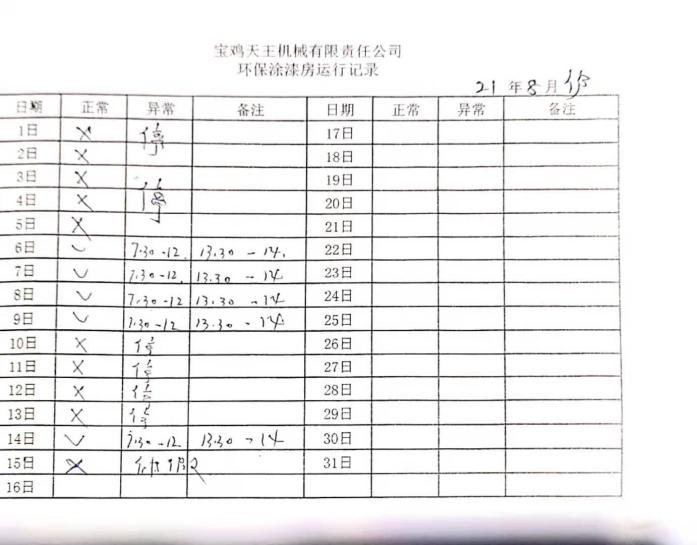 宝鸡天王机械有限责任公司
环保涂漆房运行记录
21 年 8 月
日期 正常 异常 备注 日期 正常 异常 备注
1日 × 停 17日
2日 × 18日
3日 × 停 19日
4日 × 20日
5日 × 21日
6日 ✓ 7.30-12. 13.30-14. 22日
7日 ✓ 7.30-12. 13.30-14 23日
8日 ✓ 7.30-12 13.30-14 24日
9日 ✓ 7.30-12 13.30-14 25日
10日 × 停 26日
11日 × 停 27日
12日 × 停 28日
13日 × 停 29日
14日 ✓ 7.30-12 13.30-14 30日
15日 × 31日
16日